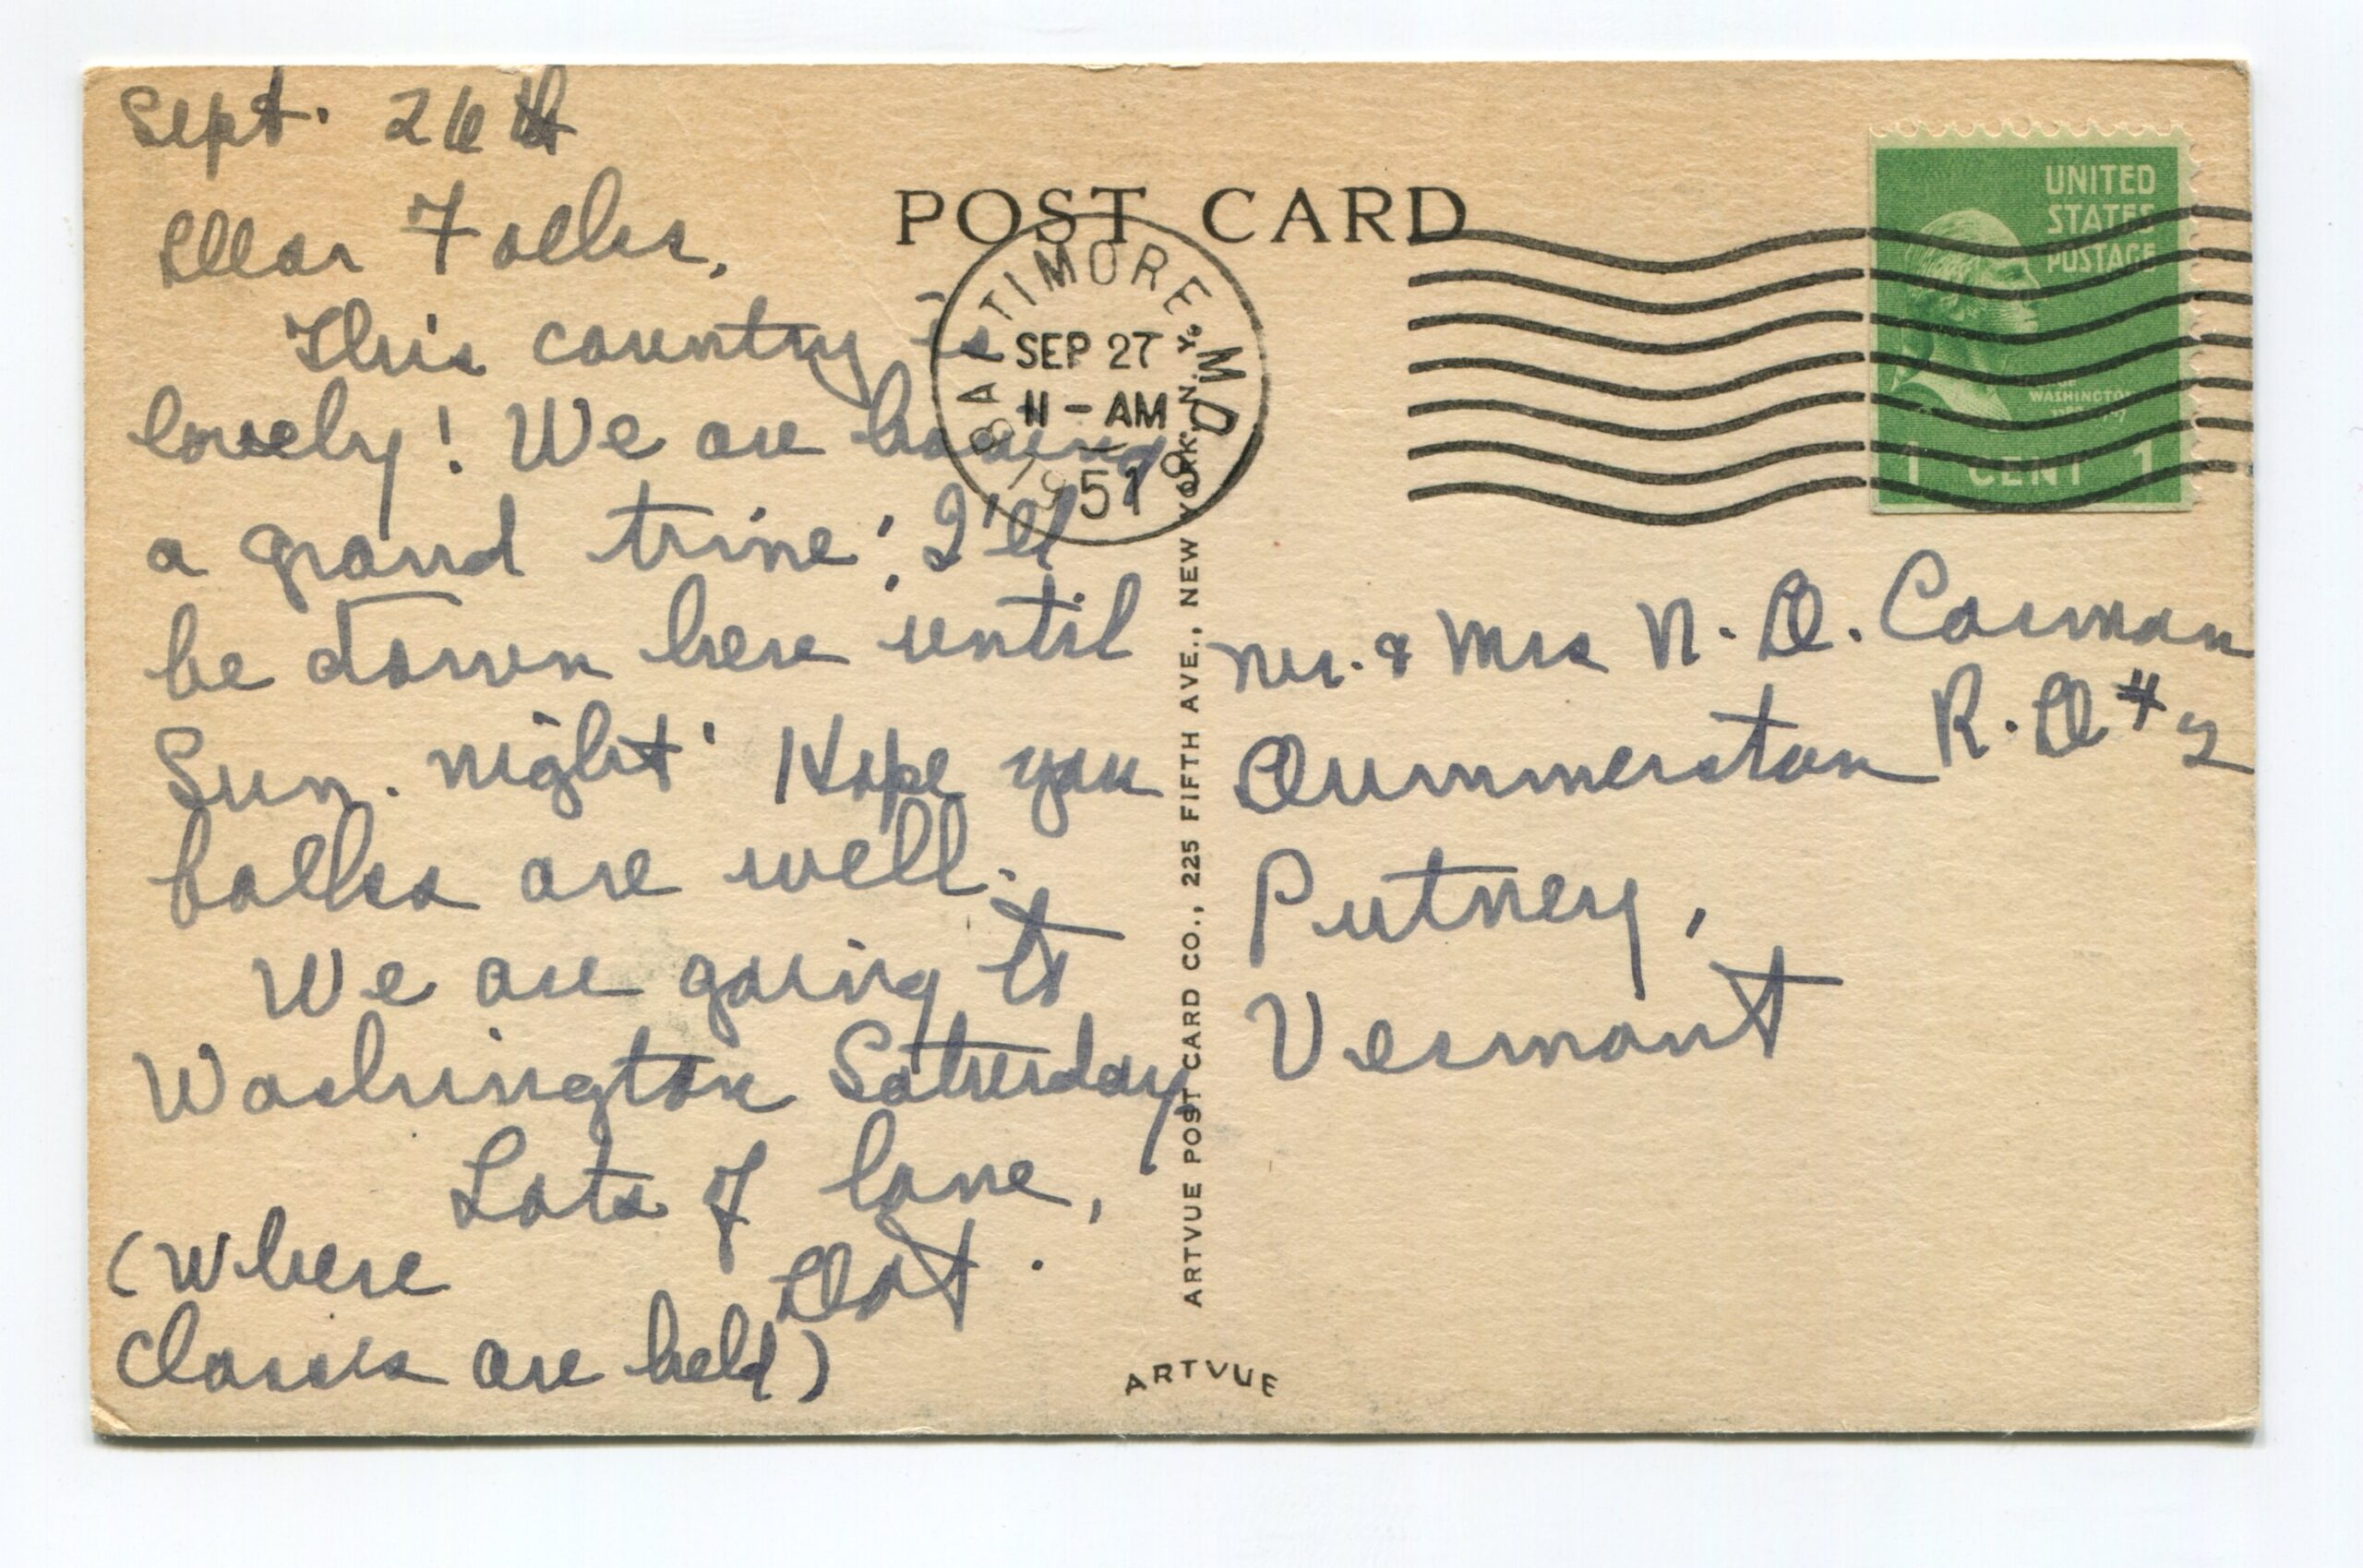 Sept. 26th
Dear Folks,
This country is
lovely! We are having
a grand time! I'll
be down here until
Sun. night. Hope you
folks are well.
We are going to
Washington Saturday
Lots of love,
Dot.
(Where
classes are held)
POST CARD
BALTIMORE MD
SEP 27
11-AM
1951
UNITED
STATES
POSTAGE
WASHINGTON
1 CENT 1
Mr. & Mrs N. D. Carman
Dummerston R.D #2
Putney,
Vermont
ARTVUE POST CARD CO., 225 FIFTH AVE., NEW YORK, N. Y.
ARTVUE